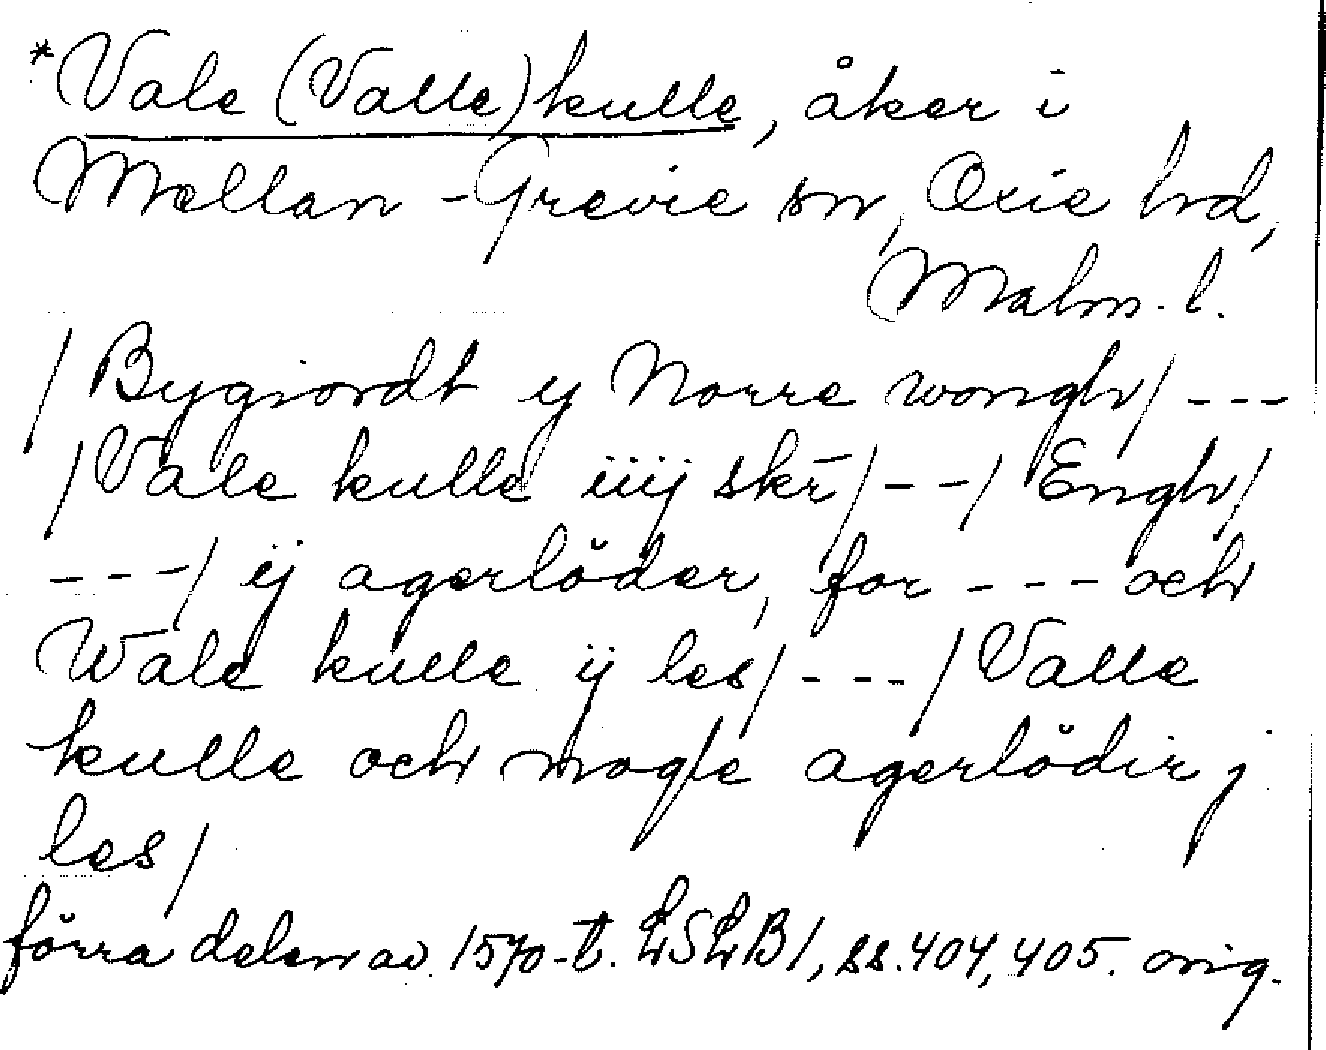 *Vale (Valle)kulle, åker i
Mellan-Grevie sn, Oxie hd,
Malm. l.
/Bygiordt ij Norre wongh/ ---
/Vale kulle iiij skr̄/--/Engh/
---/ij agerlöder, for --- och
Wale kulle ij les/---/Valle
kulle och mogle agerlödir j
les/
förra delen av 1570-t. LSLB1, ss.404, 405. orig.